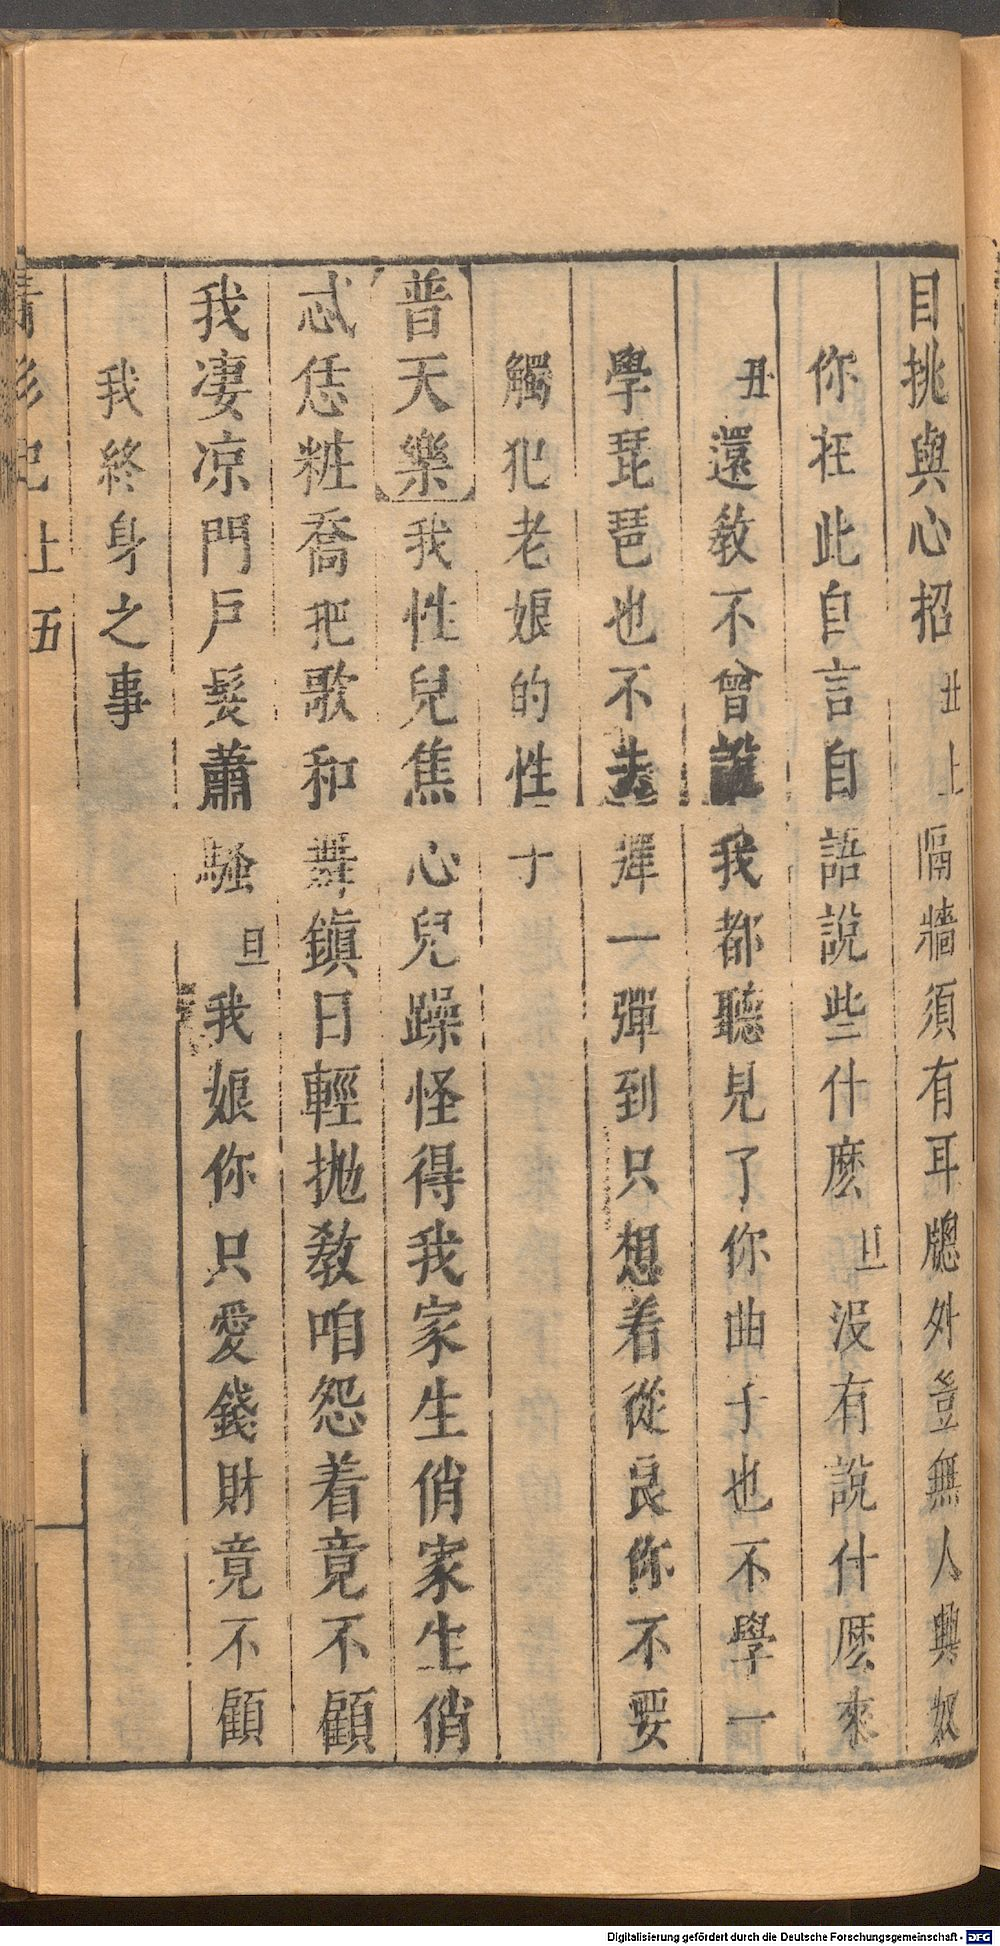 目挑與心招丑上隔牆須有耳牕外豈無人與奴
你在此自言自語說些什麽旦沒有說什麽來
丑還教不曾說我都聽見了你曲子也不學一
學琵琶也不去彈一彈到只想着從良你不要
觸犯老娘的性子
普天樂我性兒焦心兒躁怪得我家生俏家生俏
忒恁粧喬把歌和舞鎮日輕拋教咱怨着竟不顧
我凄凉門戶髮蕭騷旦我娘你只愛錢財竟不顧
我終身之事
上 五
Digitalisierung gefördert durch die Deutsche Forschungsgemeinschaft - DFG